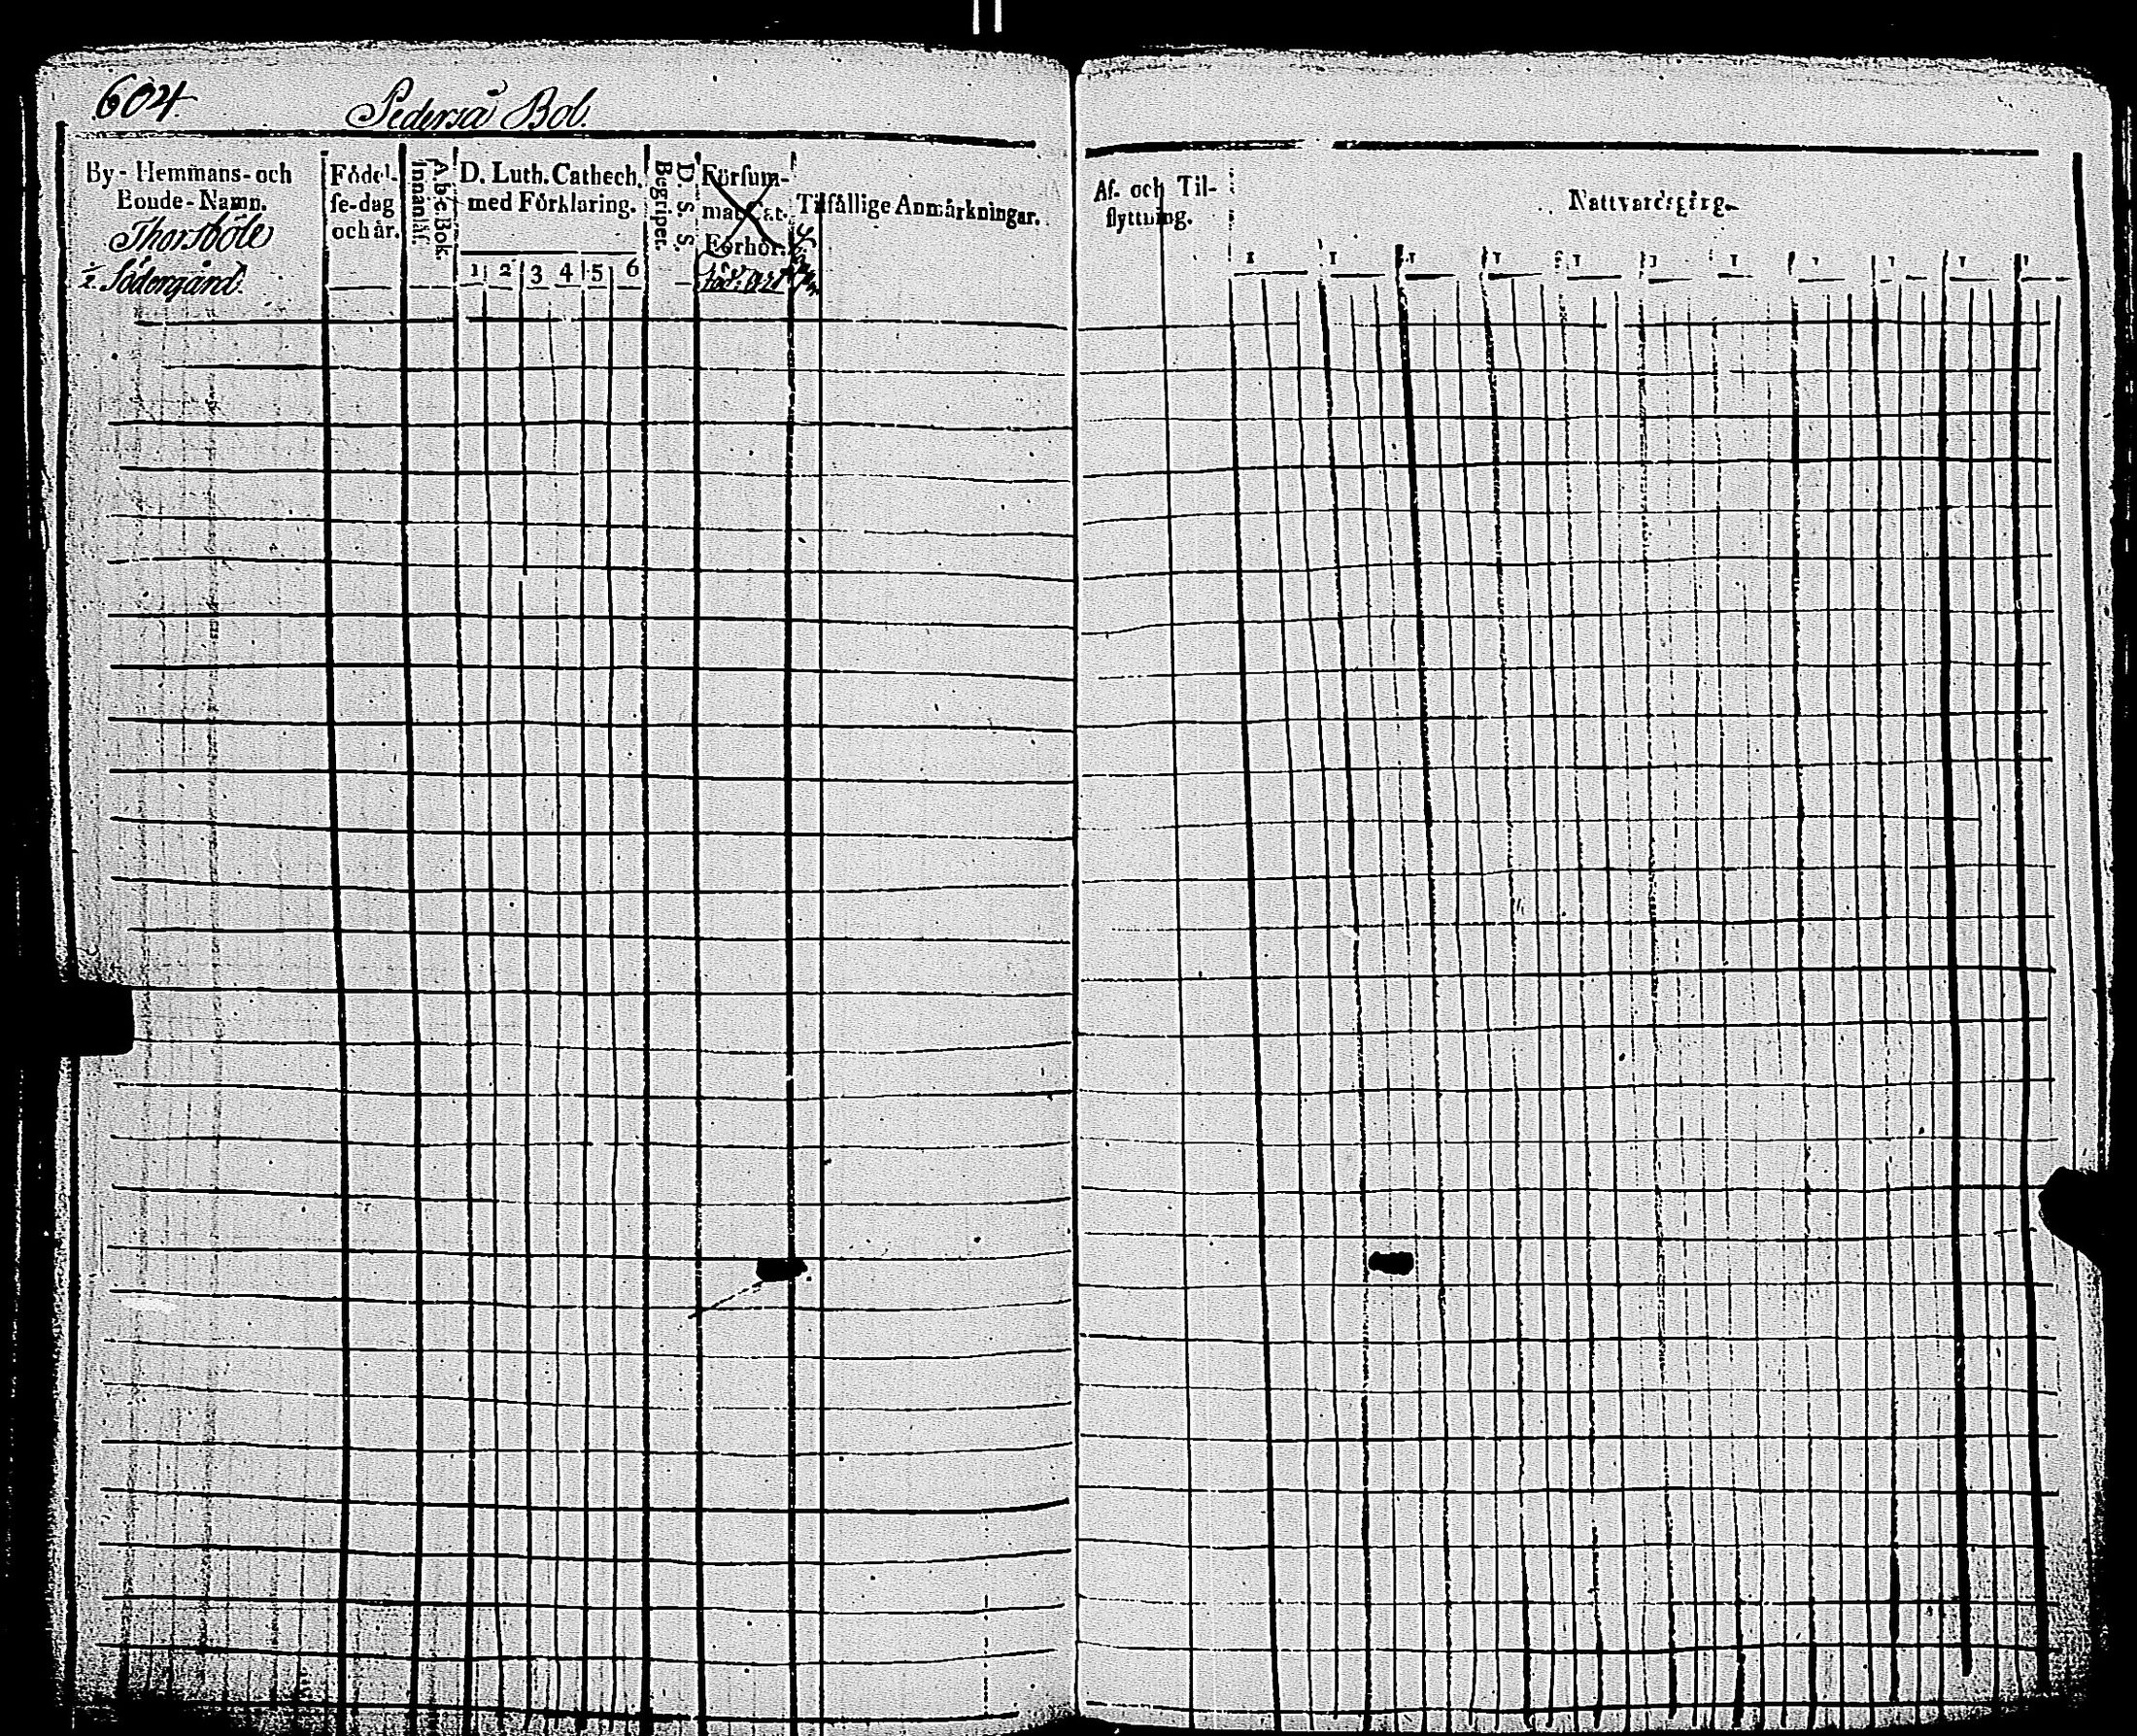 604.
Pederså Bol.
By- Hemmans- och
Bonde-Namn.
Thorsböle
1/2 Södergård
Födel-
se-dag
och år.
A b c Bok.
Innanläs.
D. Luth. Cathech.
med Förklaring.
1 2 3 4 5 6
D. S. S.
Begriper.
Försum-
mat Cat.
Förhör.
Tilfällige Anmärkningar.
Af- och Til-
flyttning.
Nattvardsgång.